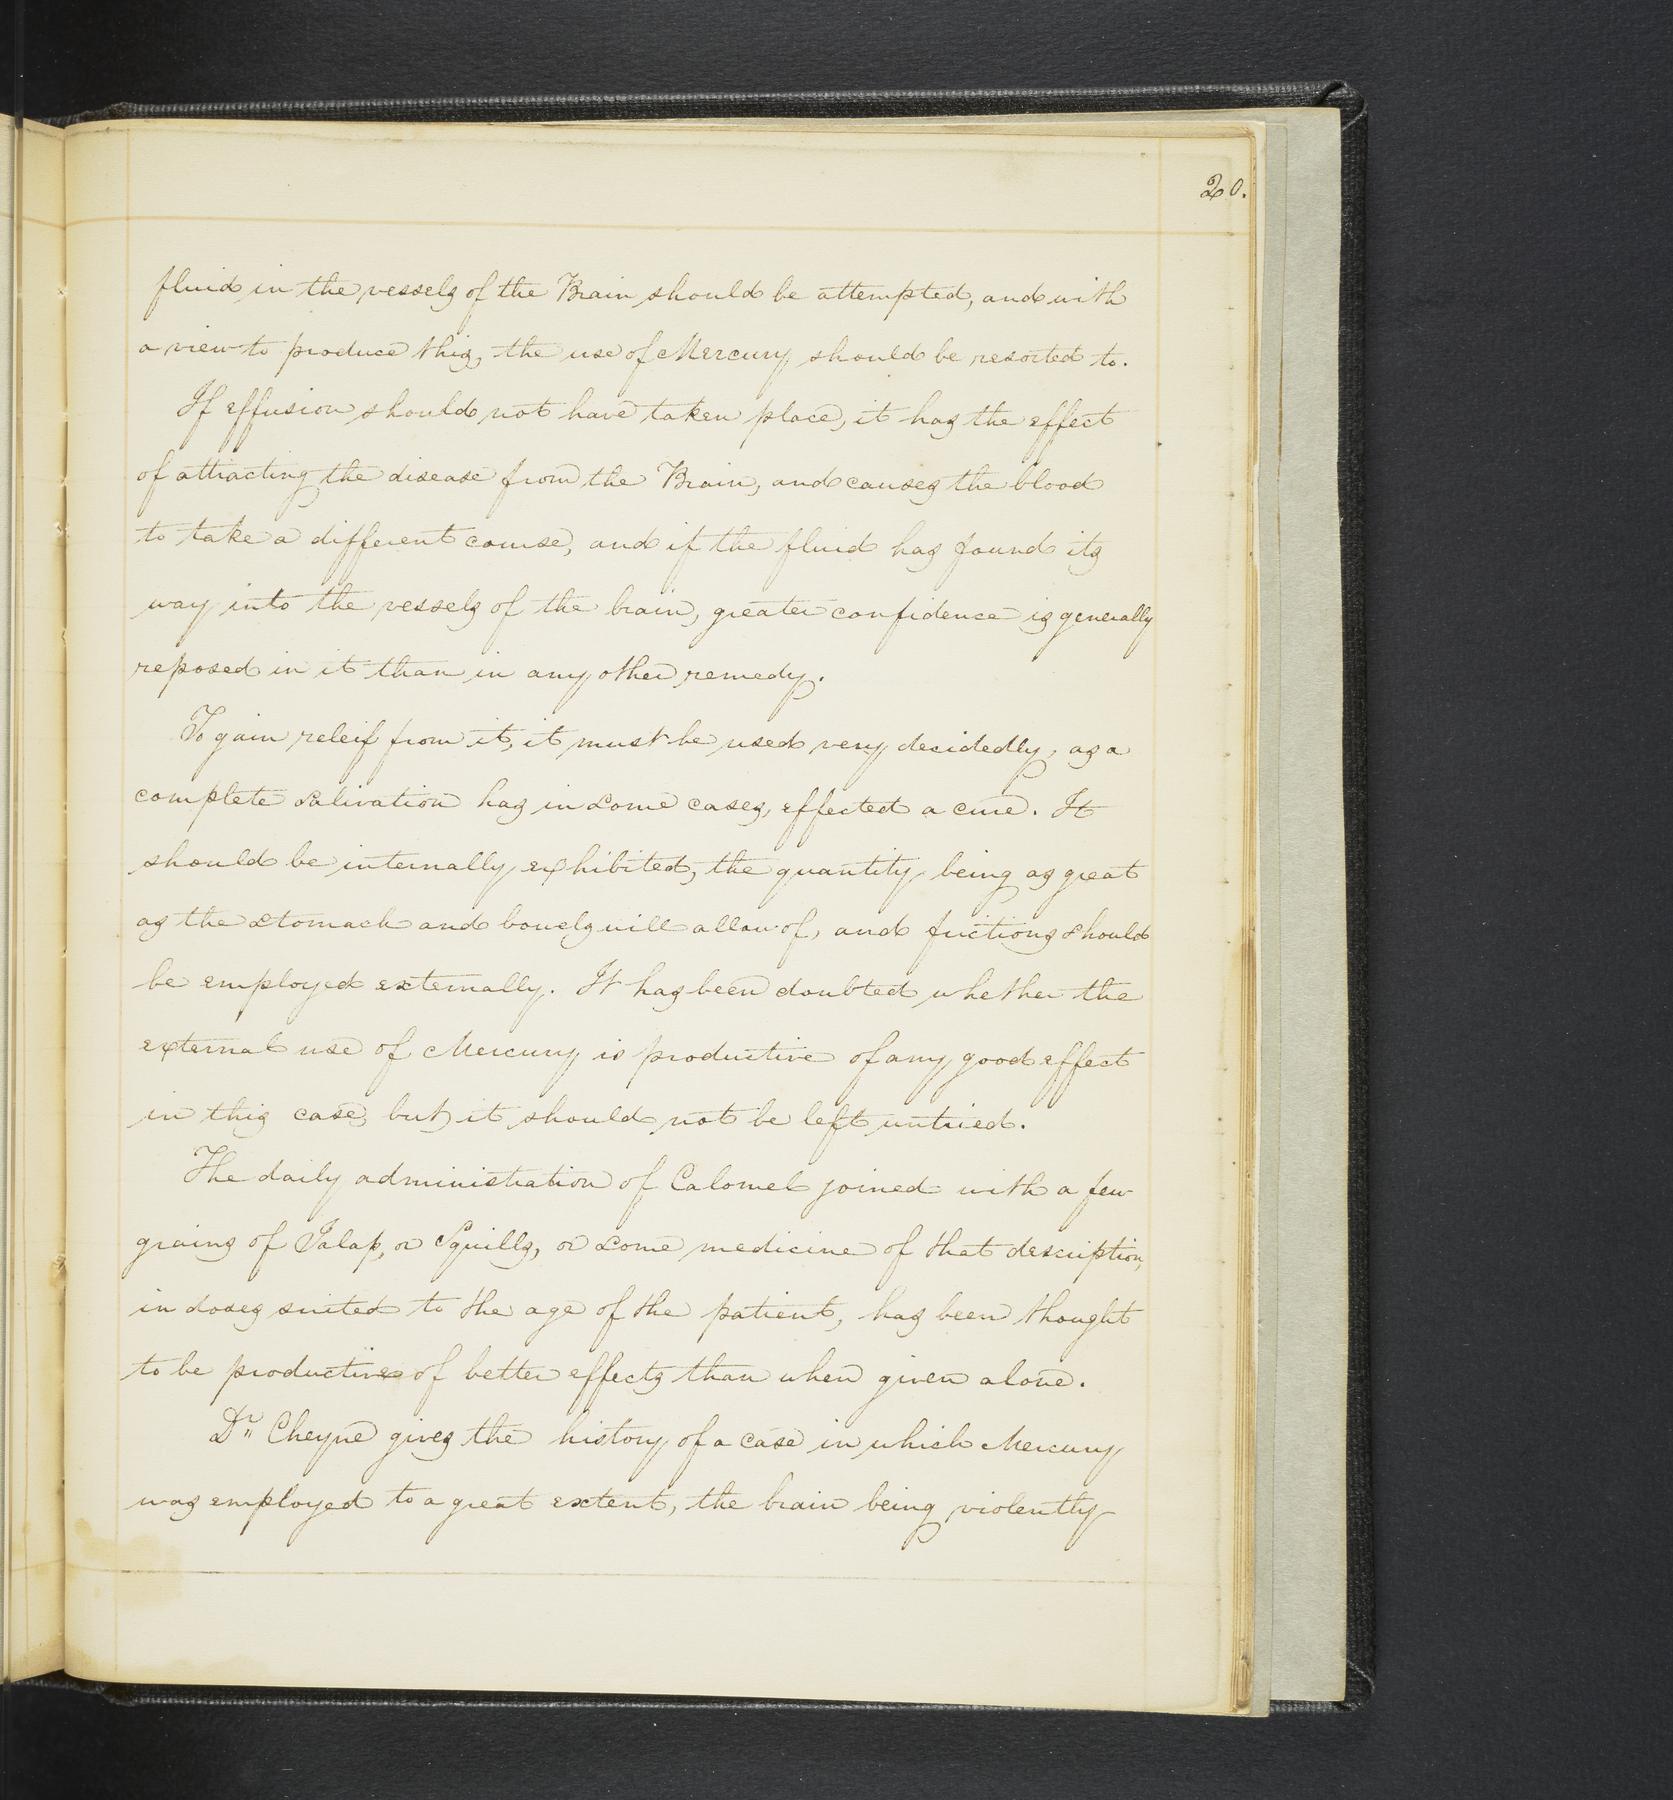 20.
fluid in the vessels of the Brain should be attempted, and with
a view to produce this, the use of Mercury should be resorted to.
If effusion should not have taken place, it has the effect
of attracting the disease from the Brain, and causes the blood
to take a different course, and if the fluid has found its
way into the vessels of the brain, greater confidence is generally
reposed in it than in any other remedy.
To gain releif from it, it must be used very decidedly, as a
complete salivation has in some cases, effected a cure. It
should be internally exhibited, the quantity being as great
as the stomach and bowels will allow of, and frictions should
be employed externally. It has been doubted whether the
external use of Mercury is productive of any good effect
in this case, but it should not be left untried.
The daily administration of Calomel joined with a few
grains of Jalap, or Squills, or some medicine of that description,
in doses suited to the age of the patient, has been thought
to be productive of better effects than when given alone.
Dr. Cheyne gives the history of a case in which Mercury
was employed to a great extent, the brain being violently